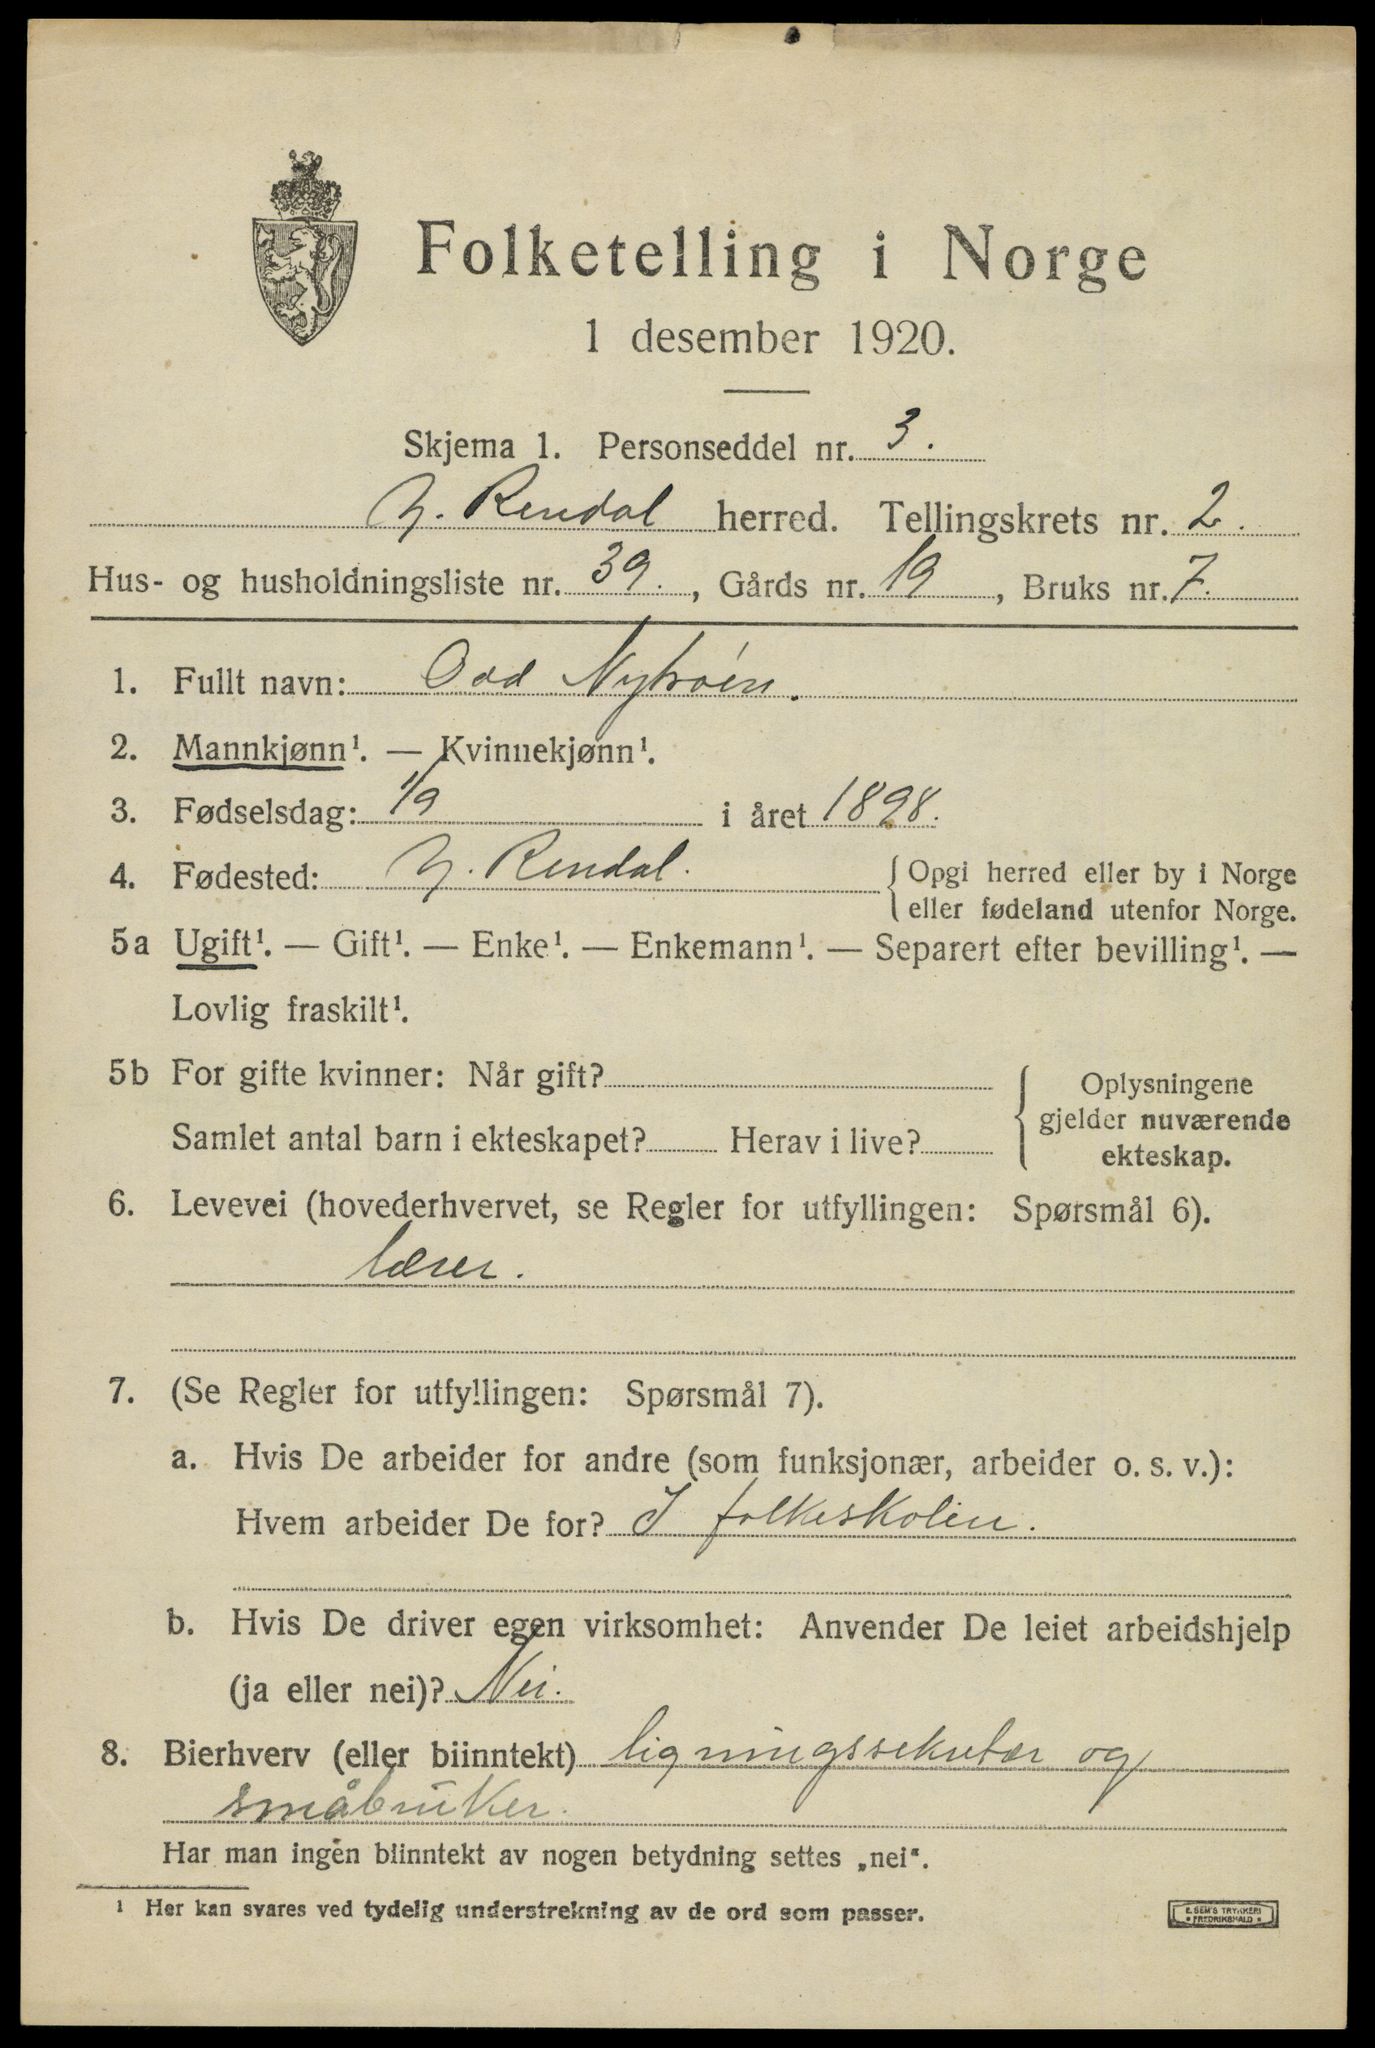 Folketelling i Norge
1 desember 1920.
Skjema 1. Personseddel nr. 3.
Y. Rendal herred. Tellingskrets nr. 2.
Hus- og husholdningsliste nr. 39., Gårds nr. 19, Bruks nr. 7.
1. Fullt navn: Odd Nytrøen.
2. Mannkjønn¹. — Kvinnekjønn¹.
3. Fødselsdag: 1/9 i året 1898.
4. Fødested: Y. Rendal. { Opgi herred eller by i Norge
eller fødeland utenfor Norge.
5a Ugift¹. — Gift¹. — Enke¹. — Enkemann¹. — Separert efter bevilling¹. —
Lovlig fraskilt¹.
5b For gifte kvinner: Når gift?
Samlet antal barn i ekteskapet? Herav i live?
{ Oplysningene
gjelder nuværende
ekteskap.
6. Levevei (hovederhvervet, se Regler for utfyllingen: Spørsmål 6).
lærer.
7. (Se Regler for utfyllingen: Spørsmål 7).
a. Hvis De arbeider for andre (som funksjonær, arbeider o. s. v.):
Hvem arbeider De for? I folkeskolen.
b. Hvis De driver egen virksomhet: Anvender De leiet arbeidshjelp
(ja eller nei)? Nei.
8. Bierhverv (eller biinntekt) ligningssekretær og
småbruker.
Har man ingen biinntekt av nogen betydning settes „nei".
¹ Her kan svares ved tydelig understrekning av de ord som passer.
E. SEM'S TRYKKERI
* FREDRIKSHALD *